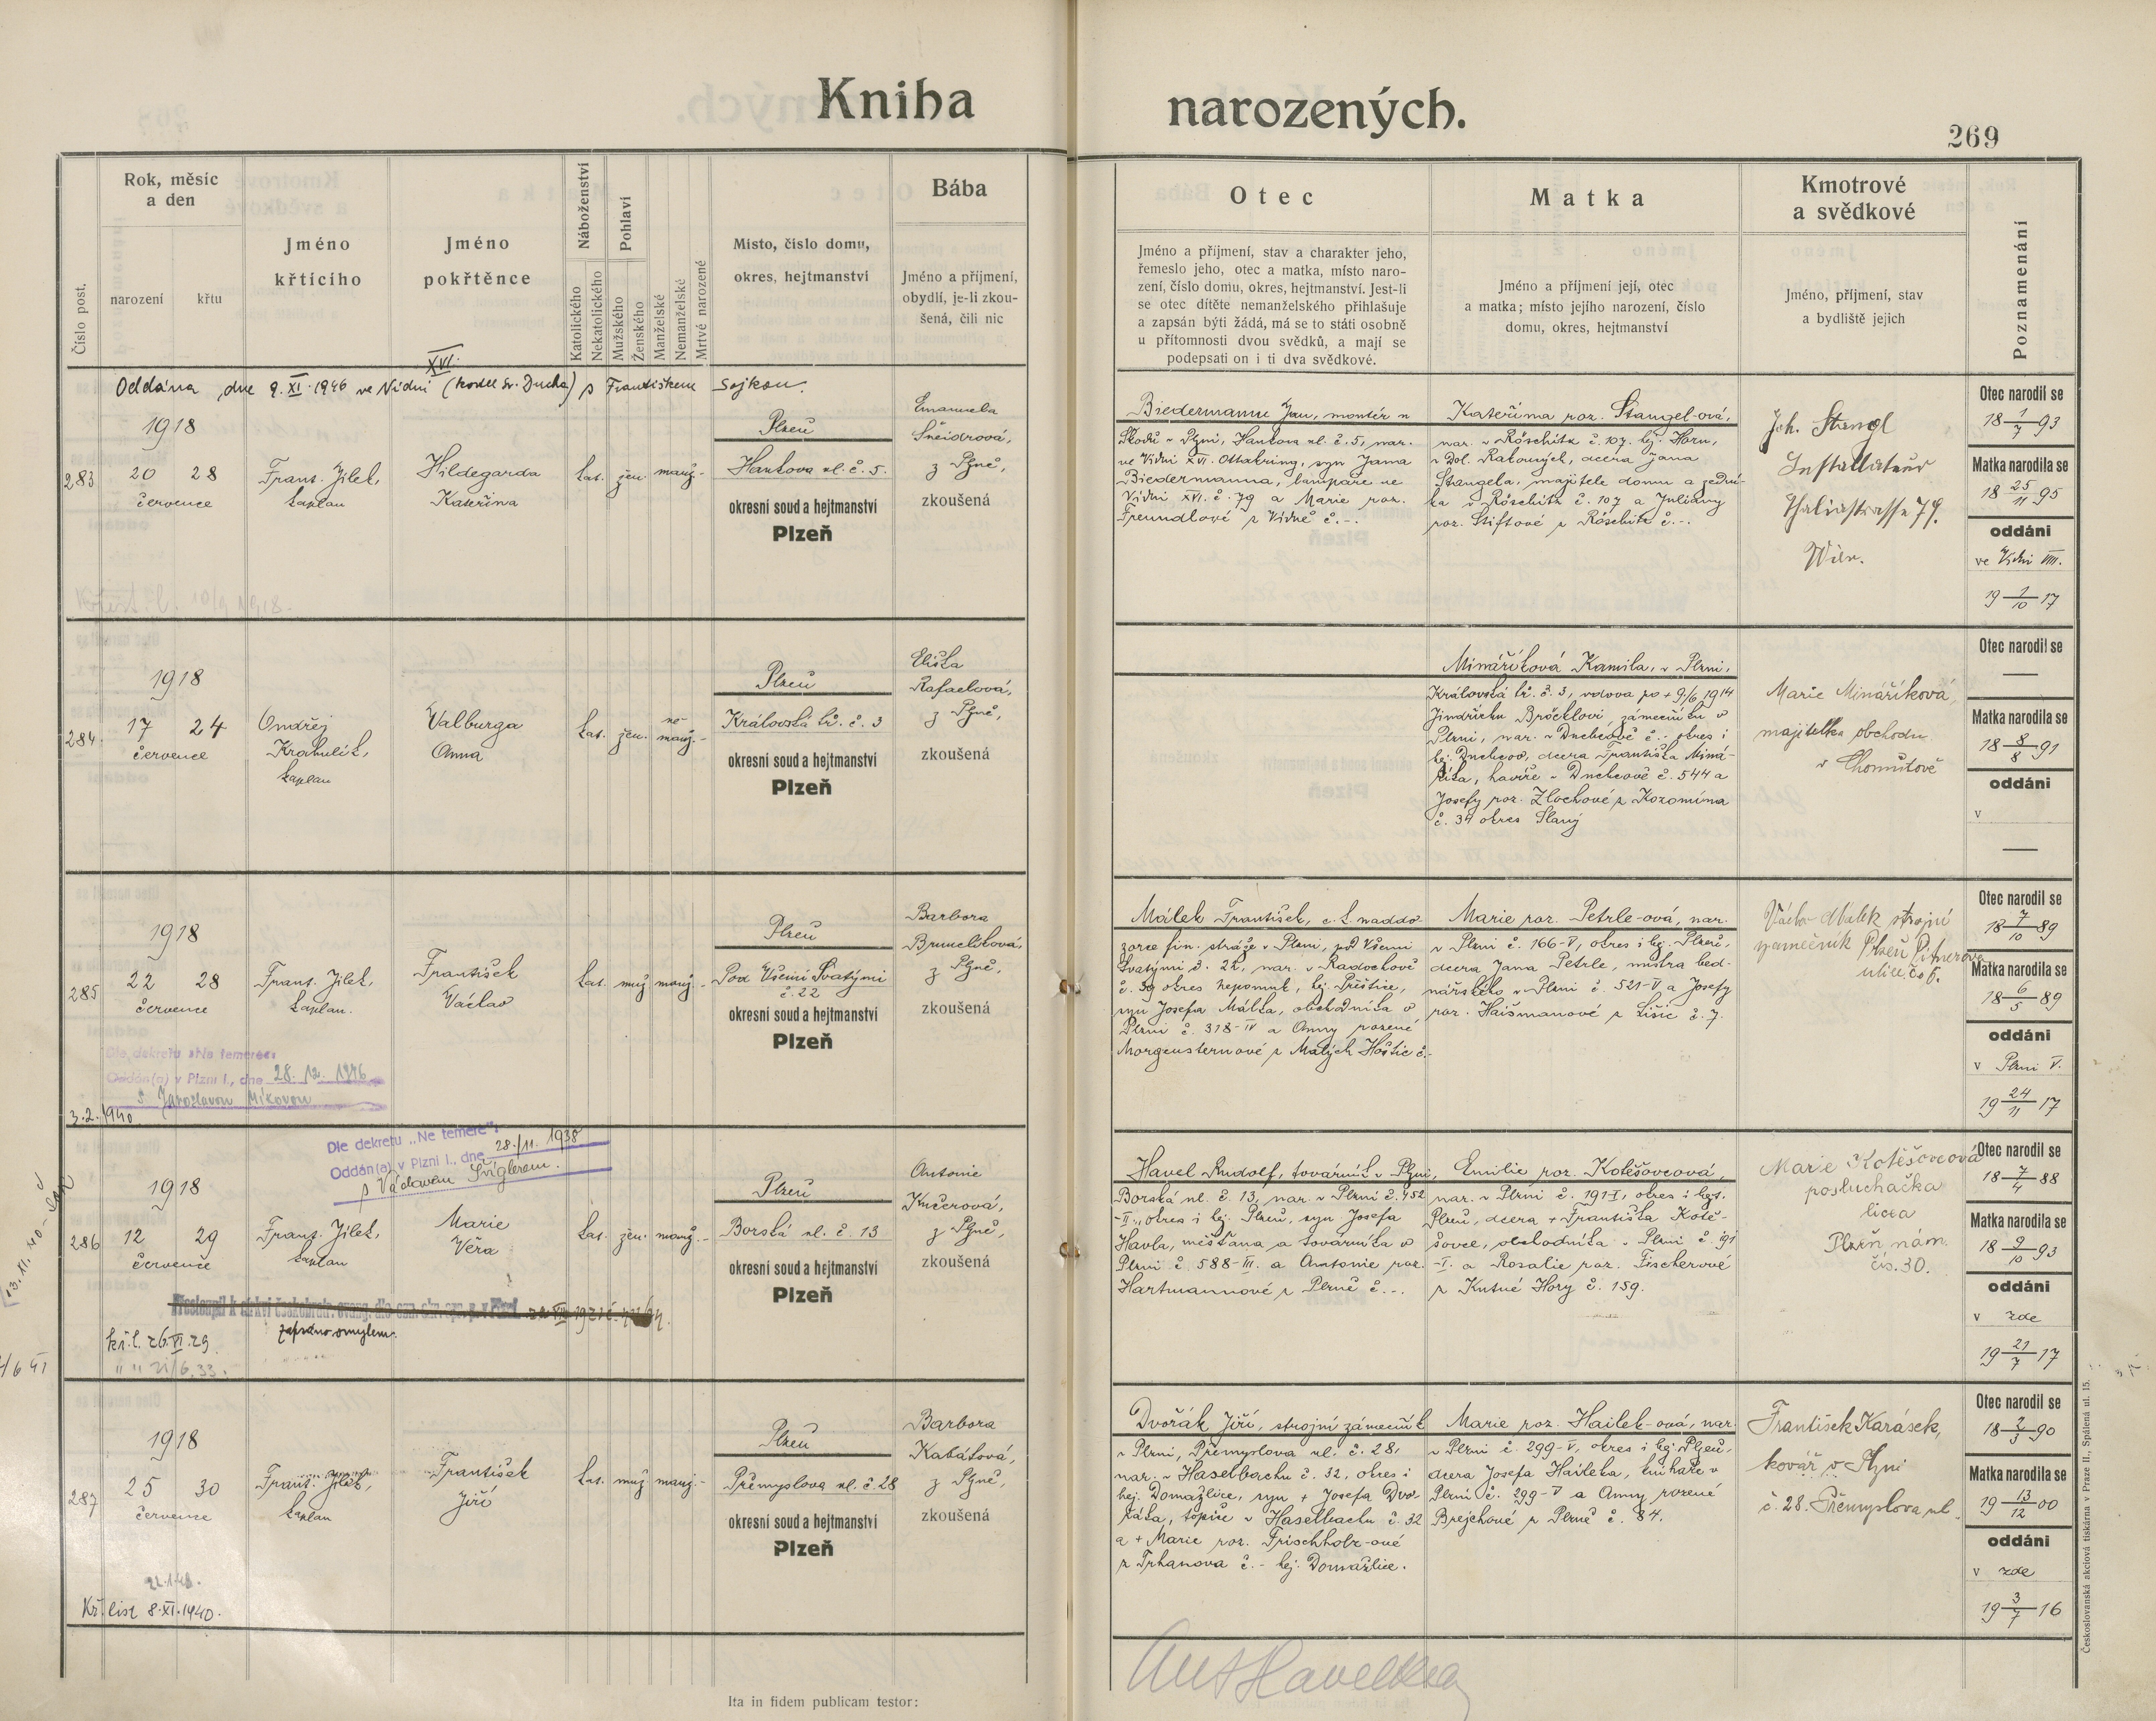 Kniha narozených.
269
Číslo post.
Rok, měsíc
a den
narození
křtu
Jméno
křtícího
Jméno
pokřtěnce
Náboženství
Katolického
Nekatolického
Pohlaví
Mužského
Ženského
Manželské
Nemanželské
Mrtvě narozené
Místo, číslo domu,
okres, hejtmanství
Bába
Jméno a příjmení,
obydlí, je-li zkou-
šená, čili nic
Otec
Jméno a příjmení, stav a charakter jeho,
řemeslo jeho, otec a matka, místo naro-
zení, číslo domu, okres, hejtmanství. Jest-li
se otec dítěte nemanželského přihlašuje
a zapsán býti žádá, má se to státi osobně
u přítomnosti dvou svědků, a mají se
podepsati on i ti dva svědkové.
Matka
Jméno a příjmení její, otec
a matka; místo jejího narození, číslo
domu, okres, hejtmanství
Kmotrové
a svědkové
Jméno, příjmení, stav
a bydliště jejich
Poznamenání
XVI.
Oddána dne 9. XI. 1946 ve Vídni (kostel sv. Ducha) s Františkem Sojkou.
283
1918
20 28
července
Frant. Jílek,
kaplan
Hildegarda
Kateřina
kat. žen. manž.
Plzeň
Hankova ul. č. 5.
okresní soud a hejtmanství
Plzeň
Emanuela
Šneidrová,
z Plzně,
zkoušená
Biedermann Jan, montér u
Škodů v Plzni, Hankova ul. č. 5, nar.
ve Vídni XVI. Ottakring, syn Jana
Biedermanna, lampáře ve
Vídni XVI. č. 79 a Marie roz.
Freundlové z Vídně č. -.
Kateřina roz. Stangel-ová,
nar. v Röschitz č. 107. hej. Horn,
v Dol. Rakousích, dcera Jana
Stangela, majitele domu a zední-
ka v Röschitz č. 107 a Juliany
roz. Stiftové z Röschitz č. -.
Joh. Stangl
Installateur
Thaliastrasse 79.
Wien.
Otec narodil se
18 1/7 93
Matka narodila se
18 25/11 95
oddáni
ve Vídni VIII.
19 1/10 17
10/9 1918.
284
1918
17 24
července
Ondřej
Krahulík,
kaplan
Valburga
Anna
kat. žen. ne-
manž.
Plzeň
Královská tř. č. 3
okresní soud a hejtmanství
Plzeň
Eliška
Rafaelová,
z Plzně,
zkoušená
Mináříková Kamila, v Plzni,
Královská tř. č. 3, vdova po + 9/6 1914
Jindřichu Bröcklovi, zámečníku v
Plzni, nar. v Duchcově č. - okres i
hej. Duchcov, dcera Františka Miná-
říka, havíře v Duchcově č. 544 a
Josefy roz. Zlochové z Kozomína
č. 34 okres Slaný
Marie Mináříková,
majitelka obchodu
v Chomutově
Otec narodil se
—
Matka narodila se
18 8/8 91
oddáni
v
—
285
1918
22 28
července
Frant. Jílek,
kaplan.
František
Václav
kat. muž. manž.
Plzeň
Pod Všemi Svatými
č. 22
okresní soud a hejtmanství
Plzeň
Barbora
Brunclíková,
z Plzně,
zkoušená
Málek František, c. k. naddo-
zorce fin. stráže v Plzni, pod Všemi
Svatými č. 22, nar. v Radochově
č. 39 okres Nepomuk, hej. Přeštice,
syn Josefa Málka, obchodníka v
Plzni č. 318-IV a Anny rozené
Morgensternové z Malých Hoštic č. -
Marie roz. Petrle-ová, nar.
v Plzni č. 166-V, okres i hej. Plzeň,
dcera Jana Petrle, mistra bed-
nářského v Plzni č. 521-V a Josefy
roz. Haišmanové z Lišic č. 7.
Václav Málek strojní
zámečník Plzeň
ulice čs 5.
Otec narodil se
18 7/10 89
Matka narodila se
18 6/5 89
oddáni
v Plzni V.
19 24/11 17
Dle dekretu „Ne temere“:
Oddán(a) v Plzni I., dne 28. 12. 1946
s Jaroslavou Míkovou
3.2.1940.
Dle dekretu „Ne temere“:
Oddán(a) v Plzni I., dne 28./11. 1938
s Václavem Šviglerem.
286
1918
12 29
července
Frant. Jílek,
kaplan
Marie
Věra
kat. žen. manž.
Plzeň
Borská ul. č. 13
okresní soud a hejtmanství
Plzeň
Antonie
Kučerová,
z Plzně,
zkoušená
Havel Rudolf, továrník v Plzni,
Borská ul. č. 13, nar. v Plzni č. 452
-II., okres i hej. Plzeň, syn Josefa
Havla, měšťana a továrníka v
Plzni č. 588-III. a Antonie roz.
Hartmannové z Plzně č. -.
Emilie roz. Kotěšovcová,
nar. v Plzni č. 191-I, okres i hejt.
Plzeň, dcera + Františka Kotě-
šovce, obchodníka v Plzni č. 91
-I. a Rosalie roz. Fischerové
z Kutné Hory č. 159.
Marie Kotěšovcová
posluchačka
licea
Plzeň nám.
čís. 30.
Otec narodil se
18 7/4 88
Matka narodila se
18 9/10 93
oddáni
v zde
19 21/7 17
zapsáno omylem.
kř. l. 26. VI. 29.
" " 21/6. 33.
287
1918
25 30
července
Frant. Jílek,
kaplan
František
Jiří
kat. muž. manž.
Plzeň
Přemyslova ul. č. 28
okresní soud a hejtmanství
Plzeň
Barbora
Kabátová,
z Plzně,
zkoušená
Dvořák Jiří, strojní zámečník
v Plzni, Přemyslova ul. č. 28,
nar. v Haselbachu č. 32, okres i
hej. Domažlice, syn + Josefa Dvo-
řáka, topiče v Haselbachu č. 32
a + Marie roz. Frischholz-ové
z Trhanova č. - hej. Domažlice.
Marie roz. Hailek-ová, nar.
v Plzni č. 299-V, okres i hej. Plzeň,
dcera Josefa Haileka, knihaře v
Plzni č. 299-V a Anny rozené
Brejchové z Plzně č. 84.
František Karásek,
kovář v Plzni
č. 28. Přemyslova ul.
Otec narodil se
18 2/3 90
Matka narodila se
19 13/12 00
oddáni
v zde
19 3/7 16
Kř. list 8. XI. 1940.
Ita in fidem publicam testor:
Československá akciová tiskárna v Praze II., Spálená ul. 15.